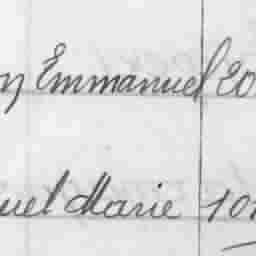 n Emmanuel 20
uel Marie 10